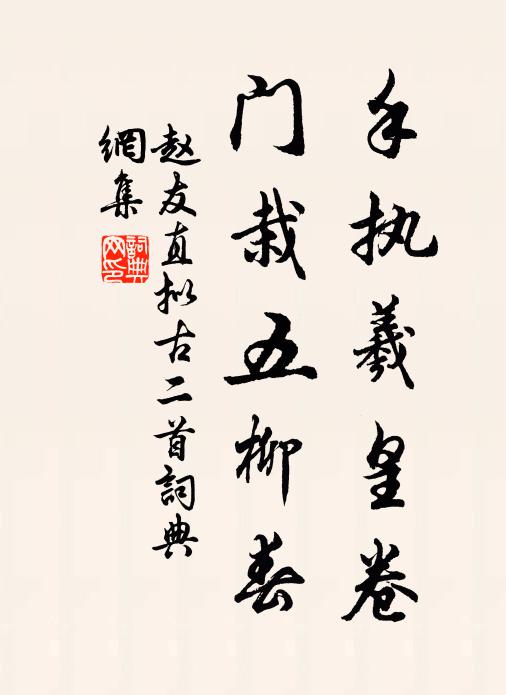 手执羲皇卷
门栽五柳春
赵友直拟古二首詞典
網集
詞典网印